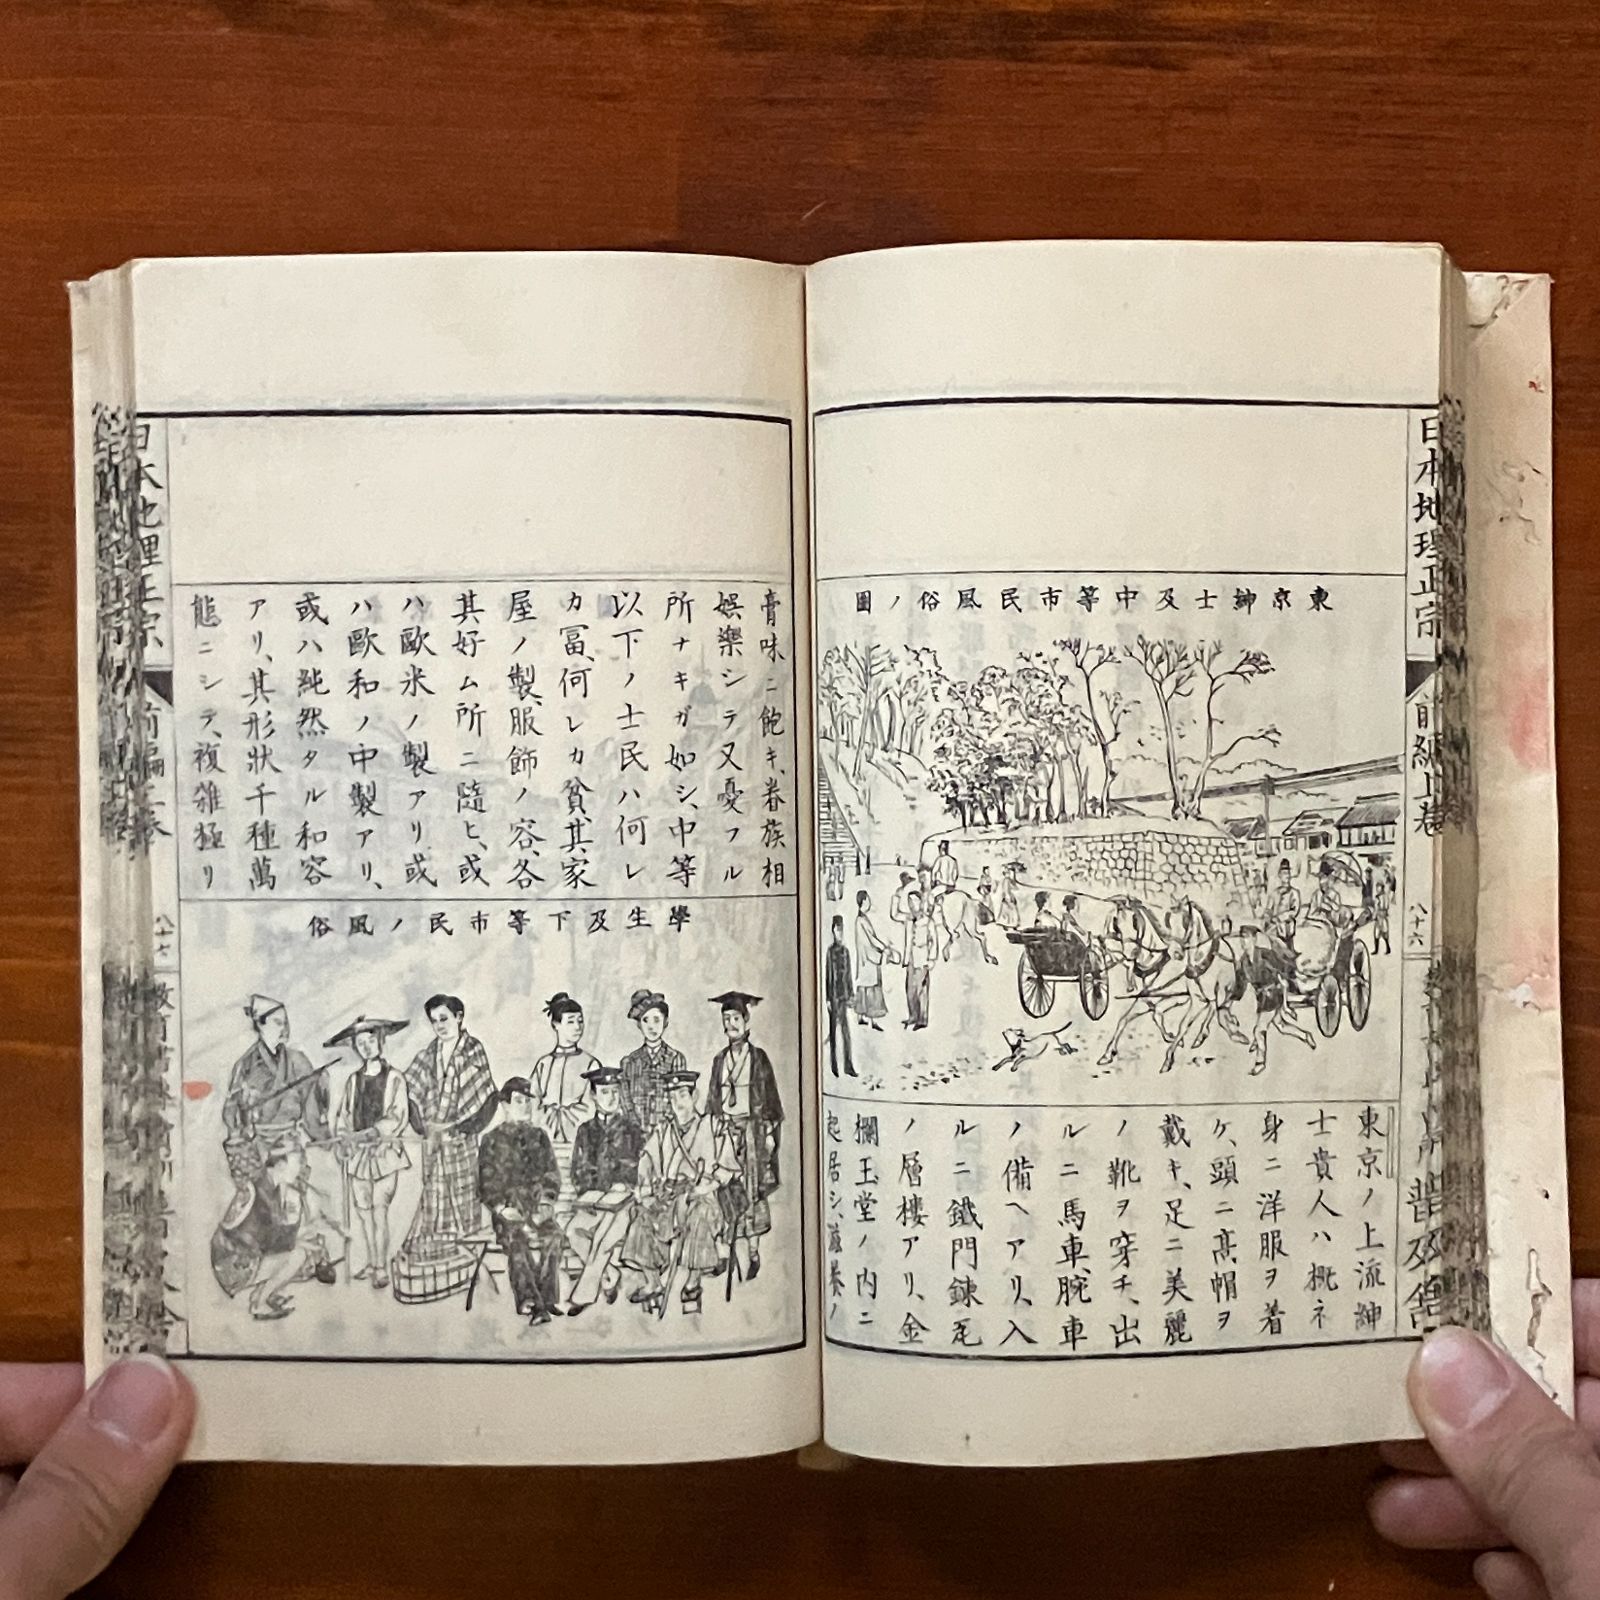 日本地理正宗
前編上卷
八十六
普及舍
東京紳士及中等市民風俗ノ圖
東京ノ上流紳
士貴人ハ概ネ
身ニ洋服ヲ着
ケ、頭ニ高帽ヲ
戴キ、足ニ美麗
ノ靴ヲ穿チ、出
ルニ馬車、腕車
ノ備ヘアリ、入
ルニ鐵門錬瓦
ノ層樓アリ、金
欄玉堂ノ内ニ
起居シ、
膏味ニ飽キ、眷族相
娯樂シテ又憂フル
所ナキガ如シ、中等
以下ノ士民ハ何レ
カ冨、何レカ貧、其家
屋ノ製、服飾ノ容、各
其好ム所ニ隨ヒ、或
ハ歐米ノ製アリ或
ハ歐和ノ中製アリ、
或ハ純然タル和容
アリ、其形狀千種萬
態ニシテ、複雜極リ
學生及下等市民ノ風俗
日本地理正宗
八十七